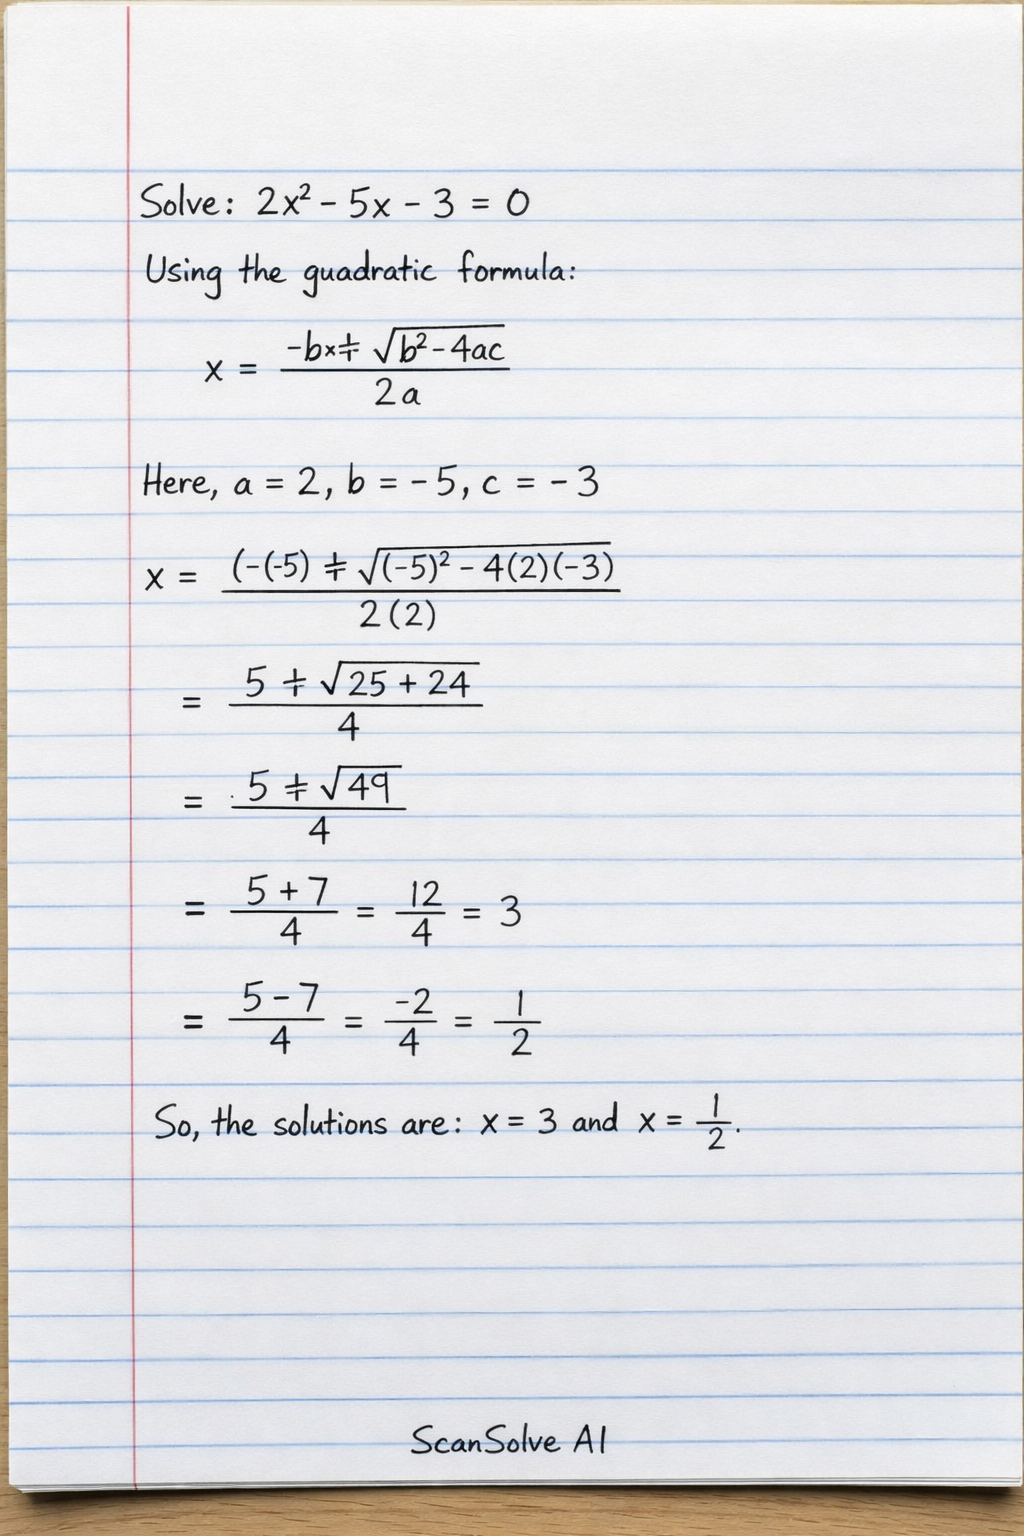 Solve: 2x² - 5x - 3 = 0
Using the quadratic formula:
x = (-bx∓ √(b² - 4ac)) / 2a
Here, a = 2, b = -5, c = -3
x = (-(-5) ∓ √((-5)² - 4(2)(-3)) / 2(2)
= 5 ∓ √(25 + 24) / 4
= 5 ∓ √49 / 4
= 5 + 7 / 4 = 12 / 4 = 3
= 5 - 7 / 4 = -2 / 4 = 1 / 2
So, the solutions are: x = 3 and x = 1 / 2.
ScanSolve AI